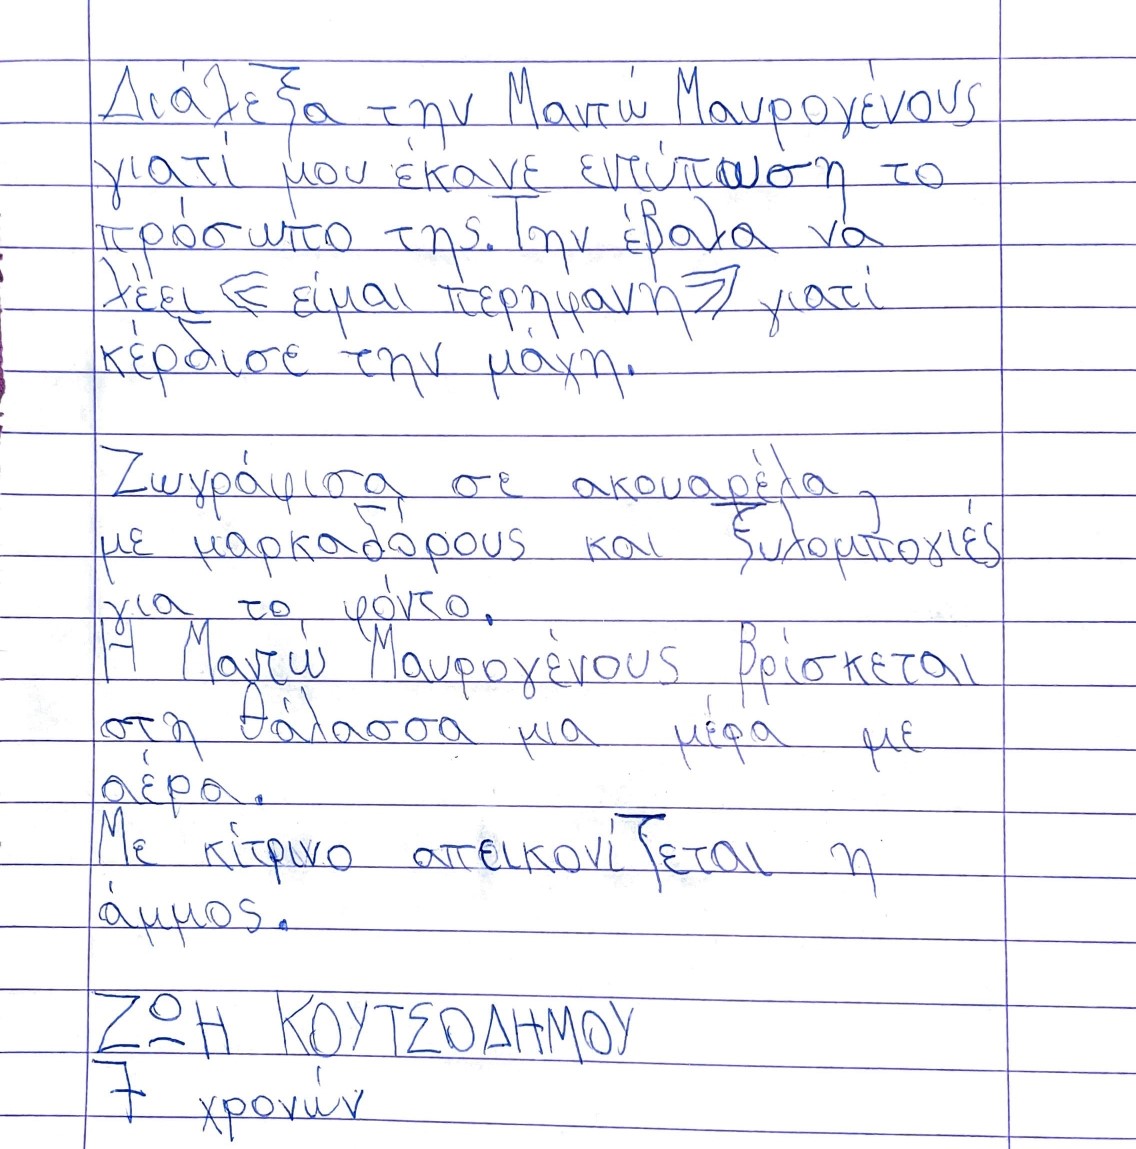 Διάλεξα την Μαντώ Μαυρογένους
γιατί μου έκανε εντύπωση το
πρόσωπο της. Την έβαλα να
λέει « είμαι περηφανή » γιατί
κέρδισε την μάχη.
Ζωγράφισα σε ακουαρέλα,
με μαρκαδόρους και ξυλομπογιές
για το φόντο.
Η Μαντώ Μαυρογένους βρίσκεται
στη θάλασσα μια μέρα με
αέρα.
Με κίτρινο απεικονίζεται η
άμμος.
ΖΩΗ ΚΟΥΤΣΟΔΗΜΟΥ
7 χρονών